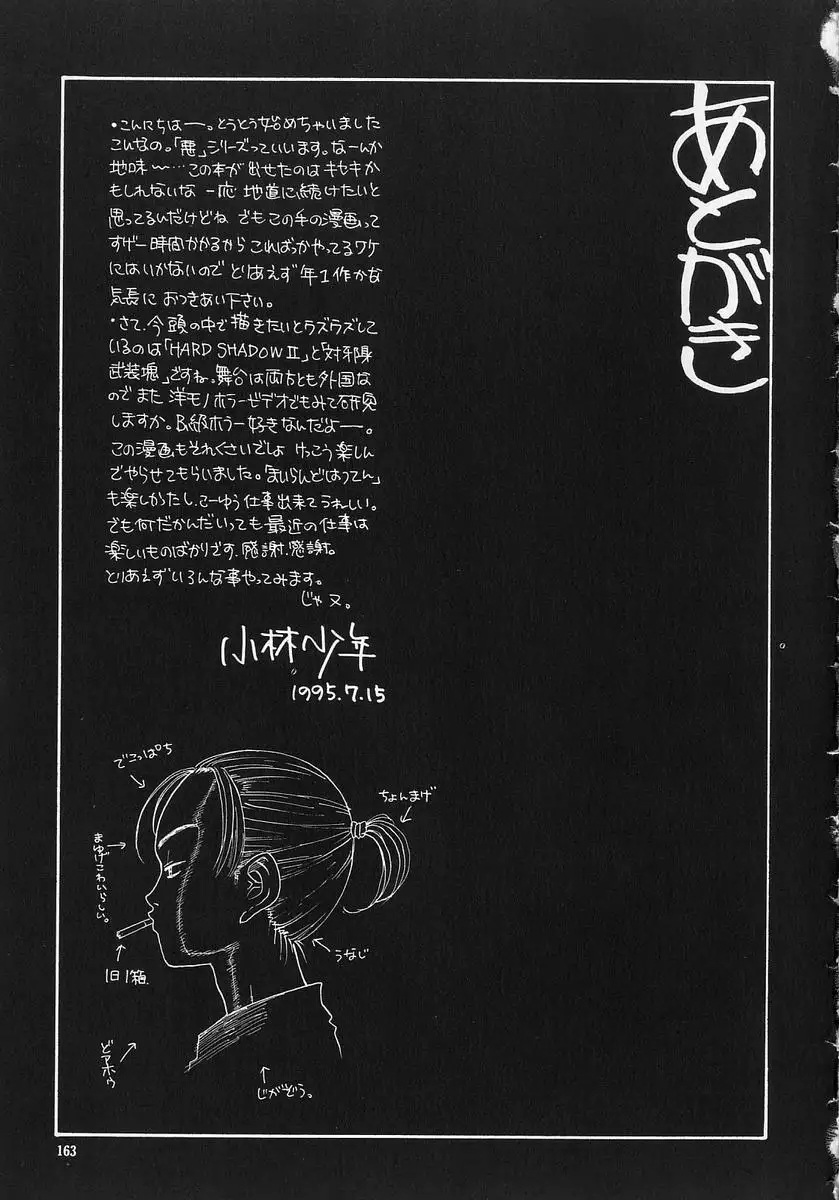 あとがき
・こんにちはー。とうとう始めちゃいました
こんなの。「悪」シリーズっていいます。なーんか
地味〜…この本が出せたのはキセキか
もしれないな 一応 地道に続けたいと
思ってるんだけどね でもこの手の漫画って
すげー時間かかるから こればっかやってるワケ
にはいかないので とりあえず年1作かな
気長に おつきあい下さい。
・さて、今頭の中で描きたいとラズラズして
いるのは「HARD SHADOWⅡ」と
武装 」ですね。舞台は両方とも外国な
のでまた 洋モノホラービデオでもみて研究
しますか。B級ホラー好きなんだよー。
この漫画もそれくさいでしょ けっこう楽しん
でやらせてもらいました。「まいらんどはつでん」
も楽しかったし、こーゆう仕事出来てうれしい。
でも何だかんだいっても最近の仕事は
楽しいものばかりです、感謝、感謝。
とりあえずいろんな事やってみます。
じゃ又。
小林少年
1995.7.15
でこっぱち
ちょんまげ
まゆげこわいらしい。
うなじ
1日1箱.
どアホゥ
じがぞう。
163